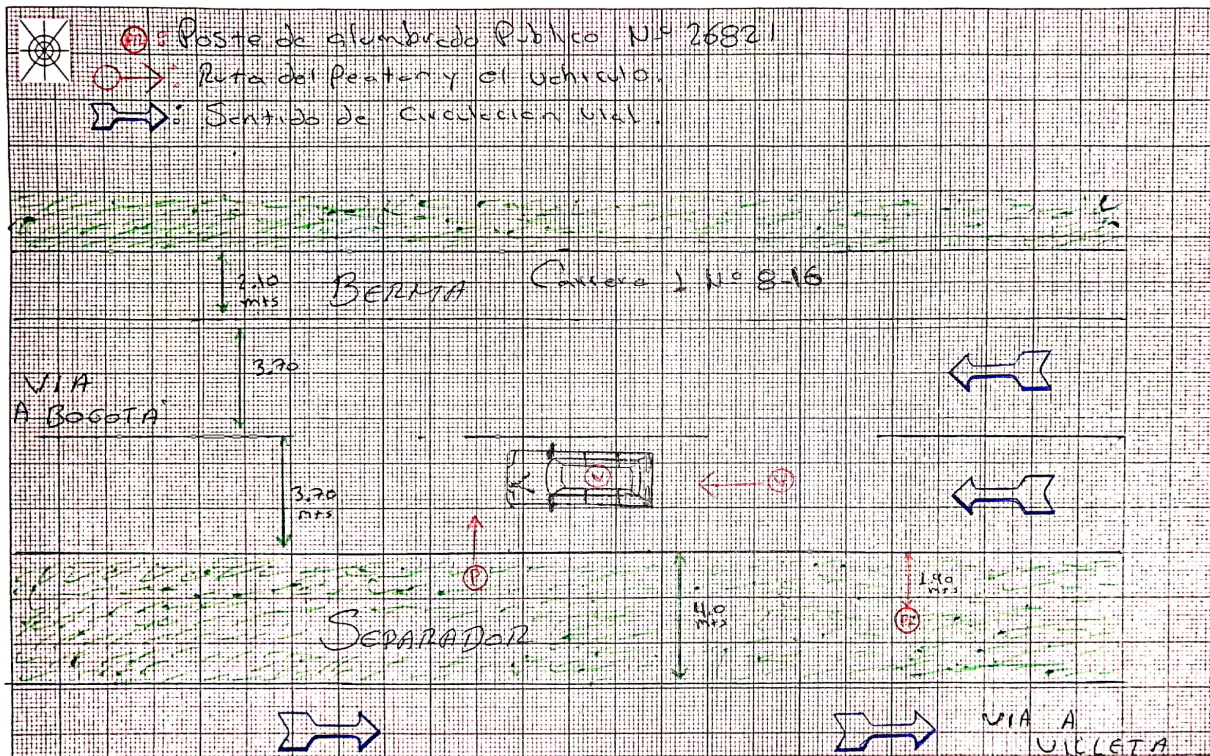 PE: Poste de alumbrado Publico Nº 26821
: Ruta del Peaton y el vehiculo.
: Sentido de Circulacion Vial.
2.10
mts
BERMA Carrera 1 Nº 8-16
3.70
VIA
A BOGOTÁ
V
V
3.70
mts
P
1.90
mts
PE
4.0
mts
SEPARADOR
VIA A
VILLETA